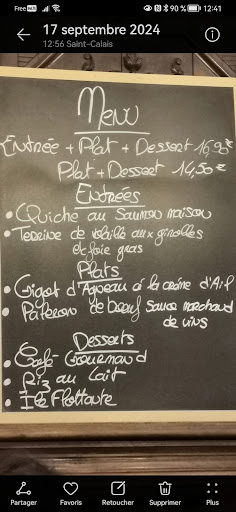 Free
90 %
12:41
17 septembre 2024
12:56 Saint-Calais
Menu
Entrée + Plat + Dessert 16,90€
Plat + Dessert 14,50€
Entrées
• Quiche au Saumon maison
• Terrine de volaille aux girolles
et foie gras
Plats
• Gigot d'Agneau à la crème d'Ail
• Paleron de bœuf Sauce marchand
de vins
Desserts
• Café Gourmand
• Riz au Lait
• Ile Flottante
Partager
Favoris
Retoucher
Supprimer
Plus